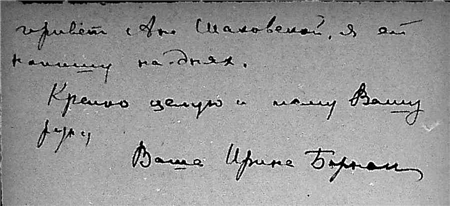 привет Ане Шаховской, я ей
напишу на-днях.
Крепко целую и жму Вашу
руку
Ваша Ирина